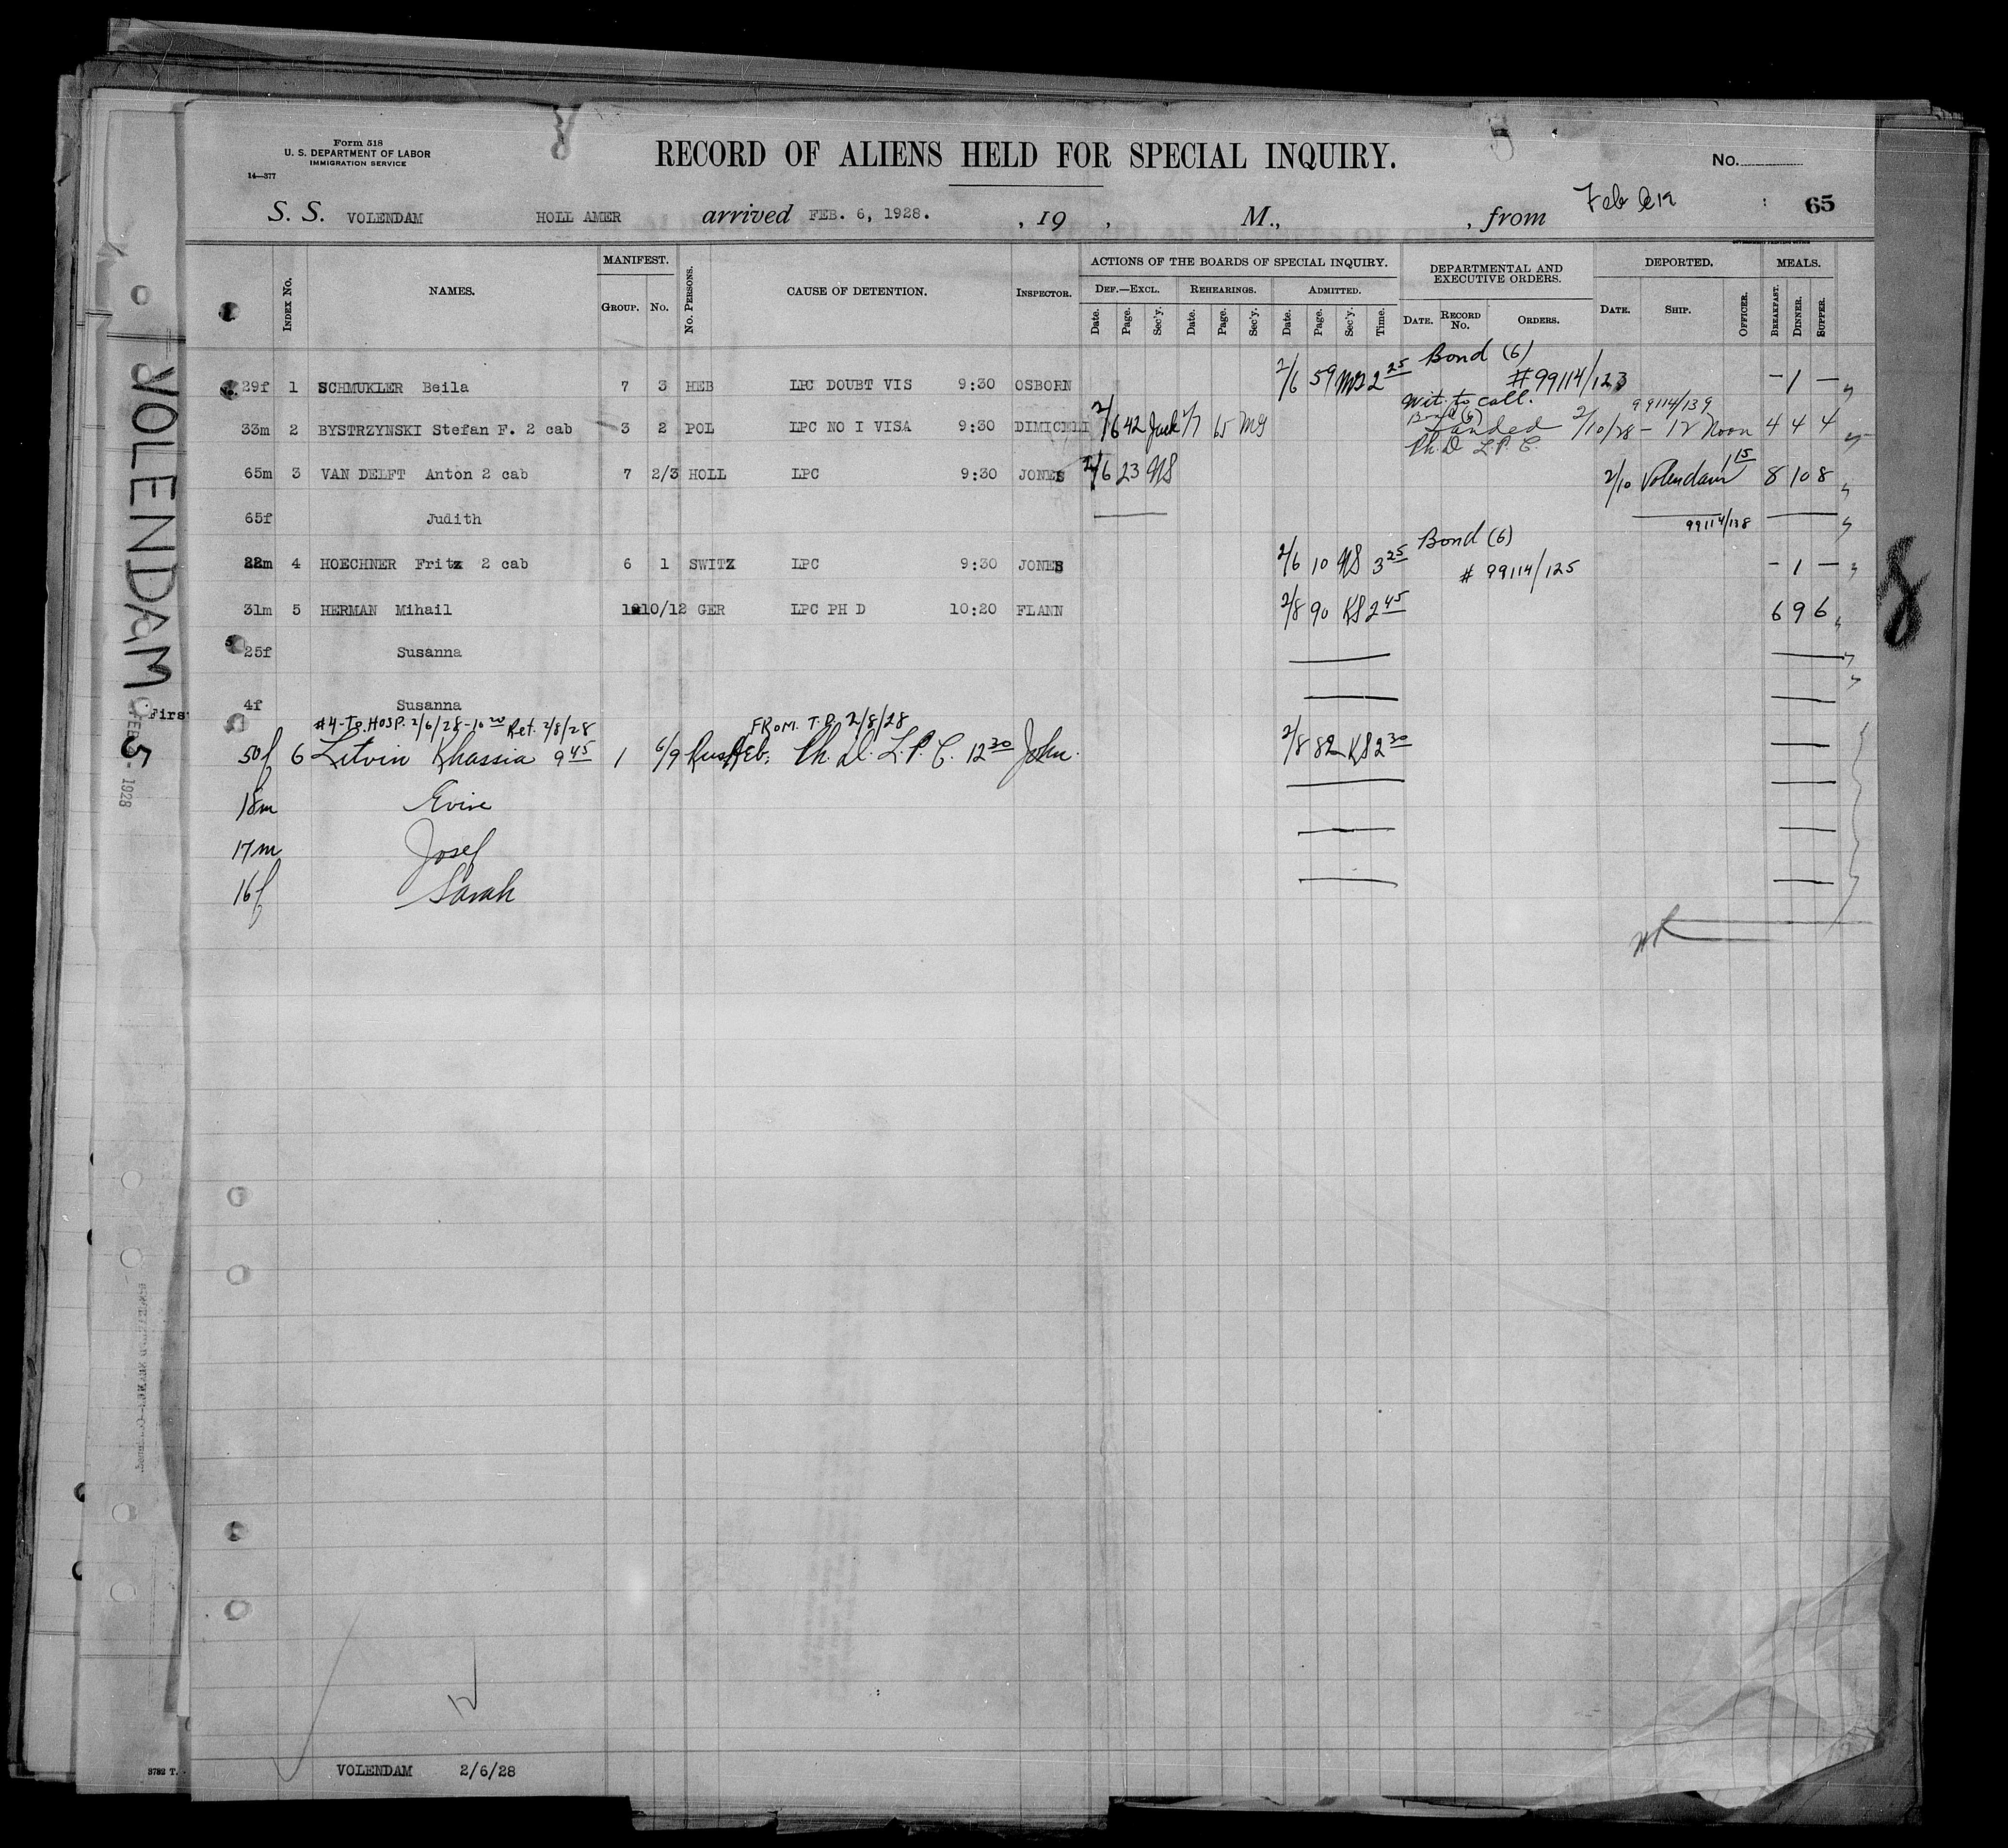 Form 518
U. S. DEPARTMENT OF LABOR
IMMIGRATION SERVICE
14—377
RECORD OF ALIENS HELD FOR SPECIAL INQUIRY.
No.
S. S. VOLENDAM HOLL AMER arrived FEB. 6, 1928. , 19 , M., , from Feb 65
INDEX No. NAMES. MANIFEST. GROUP. No. No. PERSONS. CAUSE OF DETENTION. INSPECTOR. ACTIONS OF THE BOARDS OF SPECIAL INQUIRY. DEF.—EXCL. Date. Page. Sec'y. REHEARINGS. Date. Page. Sec'y. ADMITTED. Date. Page. Sec'y. Time. DEPARTMENTAL AND EXECUTIVE ORDERS. DATE. RECORD No. ORDERS. DEPORTED. DATE. SHIP. OFFICER. MEALS. BREAKFAST. DINNER. SUPPER.
29f 1 SCHMUKLER Beila 7 3 HEB LPC DOUBT VIS 9:30 OSBORN 2/6 59 2 25 Bond (6) #99114/123 – 1 –
33m 2 BYSTRZYNSKI Stefan F. 2 cab 3 2 POL LPC NO I VISA 9:30 DIMICELI 2/6 42 2/7 65 MG Wit. to call. Bond (6) Landed 99114/139 2/10/28 – 12 Noon 4 4 4
Ph. D L.P.C.
65m 3 VAN DELFT Anton 2 cab 7 2/3 HOLL LPC 9:30 JONES 2/6 23 NS 2/10 Volendam 1 15 8 10 8
65f Judith 99114/138
22m 4 HOECHNER Fritz 2 cab 6 1 SWITZ LPC 9:30 JONES 2/6 10 NS 3 25 Bond (6) # 99114/125 – 1 –
31m 5 HERMAN Mihail 10/12 GER LPC PH D 10:20 FLANN 2/8 90 KS 2 45 6 9 6
25f Susanna
4f Susanna
#4-To HOSP. 2/6/28-10 20 Ret. 2/8/28 FROM T.D. 2/8/28
50f 6 Litvin Khassia 9 45 1 6/9 Heb. Ph D. L.P.C. 12 30 John. 2/8 82 KS 2 30
18m
17m Josef
16f Sarah
VOLENDAM
FEB 1928
5
8
First
12
VOLENDAM 2/6/28
3782 T.